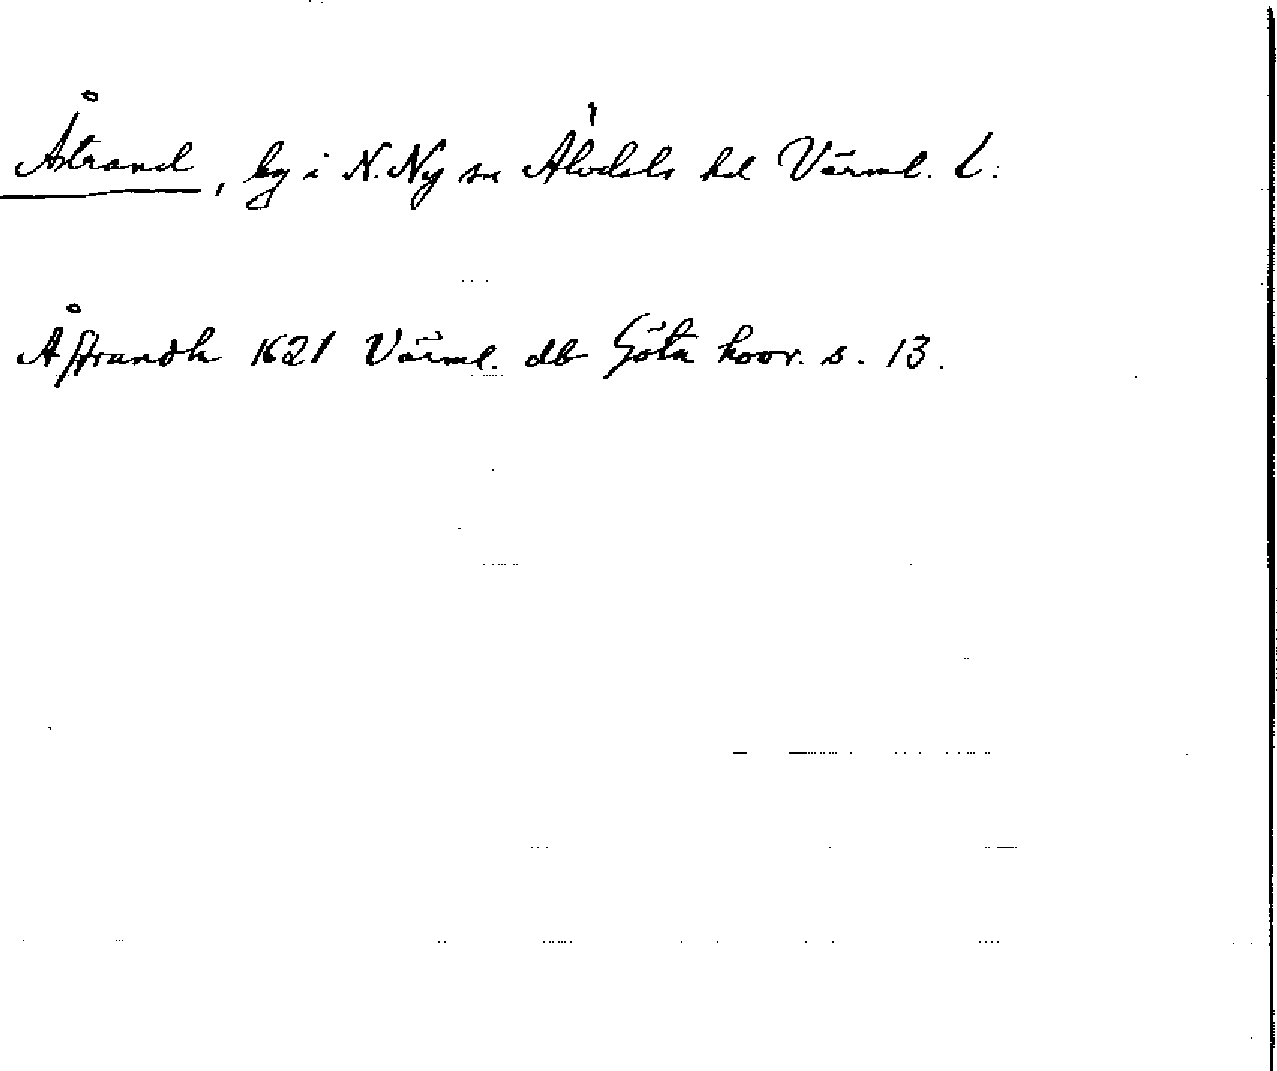 Åstrand, by i N. Ny sn Älvdals hd Värml. L.
Åstrandh 1621 Värml. db Göta hovr. s. 13.